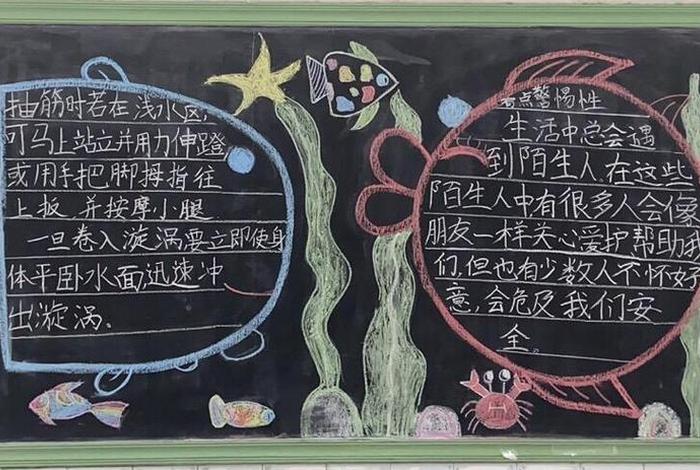 抽筋时若在浅水区,
可马上站立并用力伸蹬
或用手把脚拇指往
上扳,并按摩小腿.
一旦卷入漩涡要立即使身
体平卧水面,迅速冲
出漩涡.
点警惕性
生活中总会遇
到陌生人.在这些
陌生人中有很多人会像
朋友一样关心爱护帮助我
们.但也有少数人不怀好
意,会危及我们安
全.